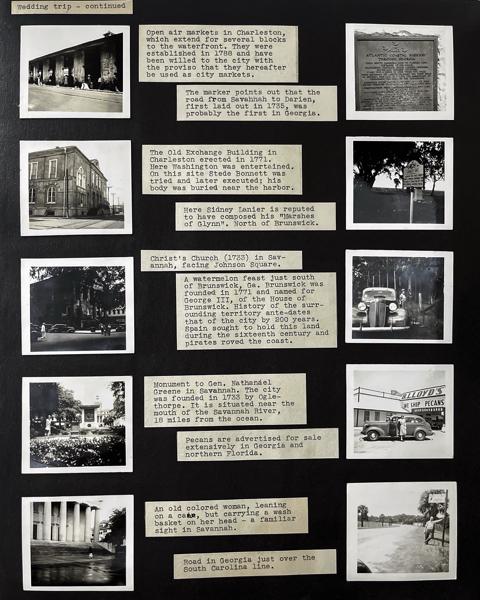 Wedding trip - continued
Open air markets in Charleston,
which extend for several blocks
to the waterfront. They were
established in 1788 and have
been willed to the city with
the proviso that they hereafter
be used as city markets.
The marker points out that the
road from Savannah to Darien,
first laid out in 1735, was
probably the first in Georgia.
The Old Exchange Building in
Charleston erected in 1771.
Here Washington was entertained.
On this site Stede Bonnett was
tried and later executed; his
body was buried near the harbor.
Here Sidney Lanier is reputed
to have composed his "Marshes
of Glynn". North of Brunswick.
Christ's Church (1733) in Sav-
annah, facing Johnson Square.
A watermelon feast just south
of Brunswick, Ga. Brunswick was
founded in 1771 and named for
George III, of the House of
Brunswick. History of the surr-
ounding territory ante-dates
that of the city by 200 years.
Spain sought to hold this land
during the sixteenth century and
pirates roved the coast.
Monument to Gen. Nathaniel
Greene in Savannah. The city
was founded in 1733 by Ogle-
thorpe. It is situated near the
mouth of the Savannah River,
18 miles from the ocean.
LLOYD'S
SHIP PECANS
Pecans are advertised for sale
extensively in Georgia and
northern Florida.
An old colored woman, leaning
on a cane, but carrying a wash
basket on her head - a familiar
sight in Savannah.
Road in Georgia just over the
South Carolina line.